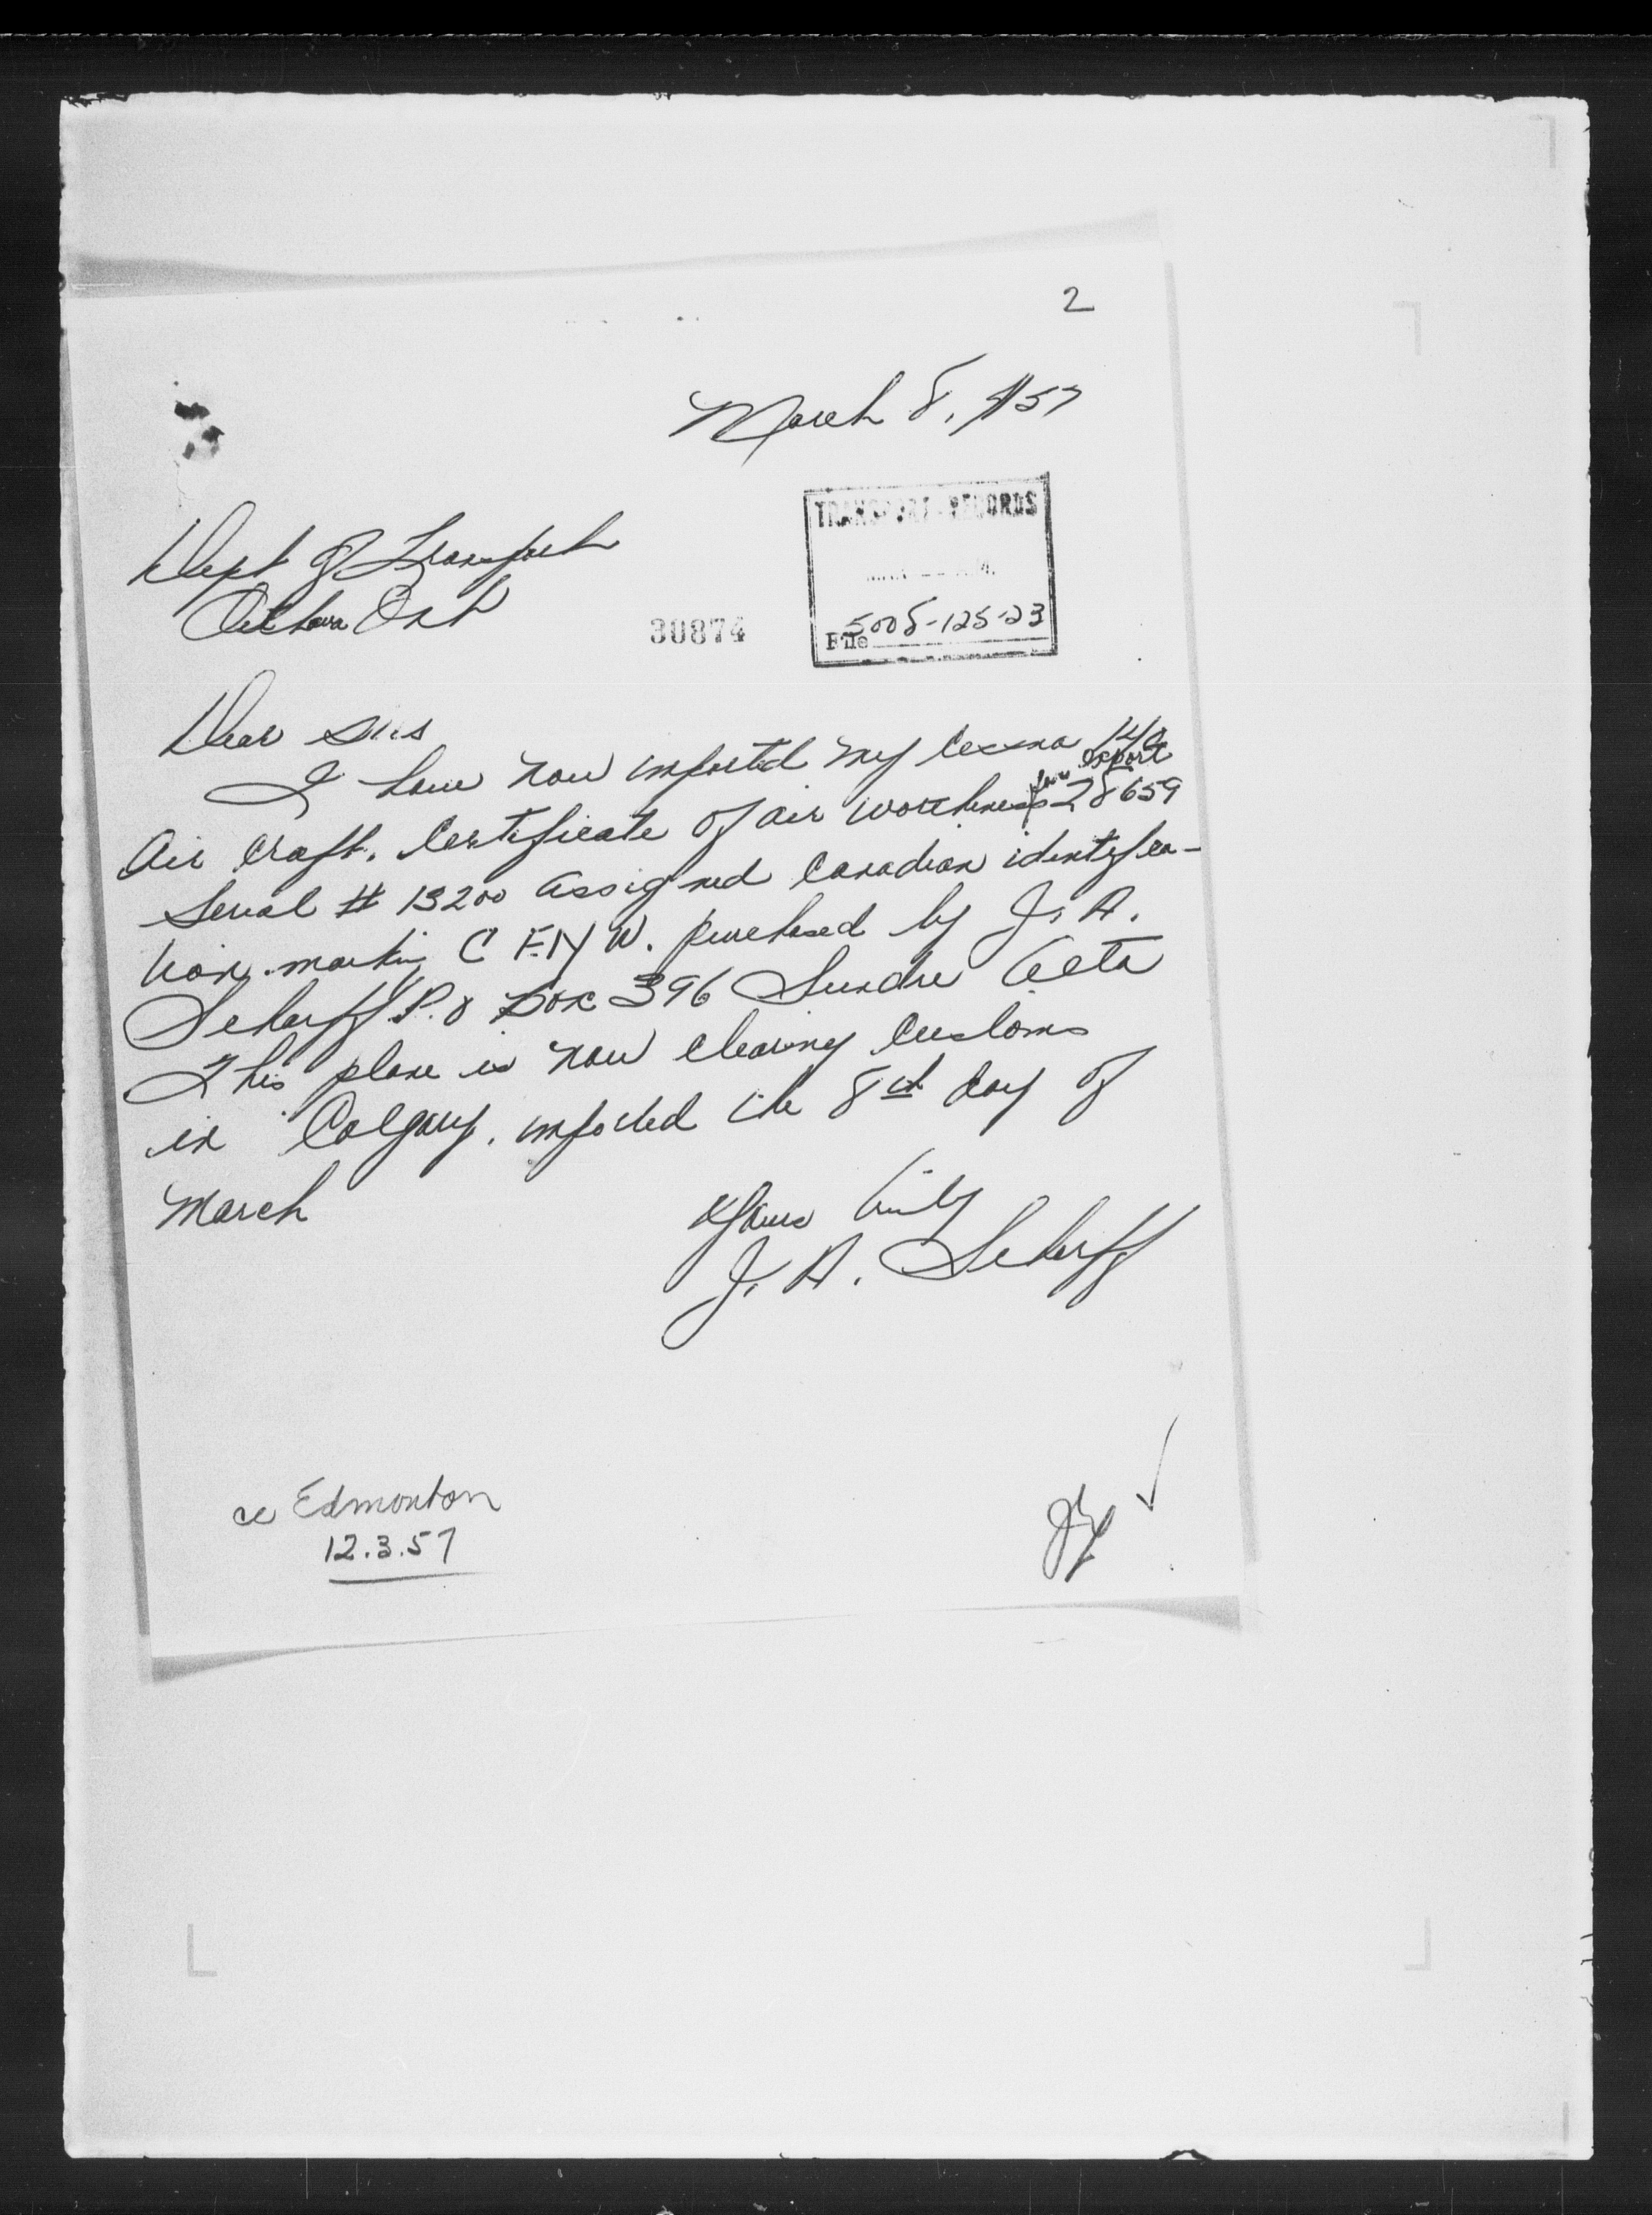 2
March 8, 57
TRANSPORT RECORDS
Dept of Transport
Ottawa Ont
30874
File 5008-125-23
Dear Sirs
I have now imported my Cessna 140
Air Craft. Certificate of air worthiness for Export 28659
Serial # 13200 assigned Canadian identifica-
tion marking C F. W. purchased by J. A.
Scharff P.O Box 396 Sundre Alta
This plane is now clearing Customs
in Calgary, imported the 8th day of
March
Yours truly
J. A. Scharff
cc Edmonton
12.3.57